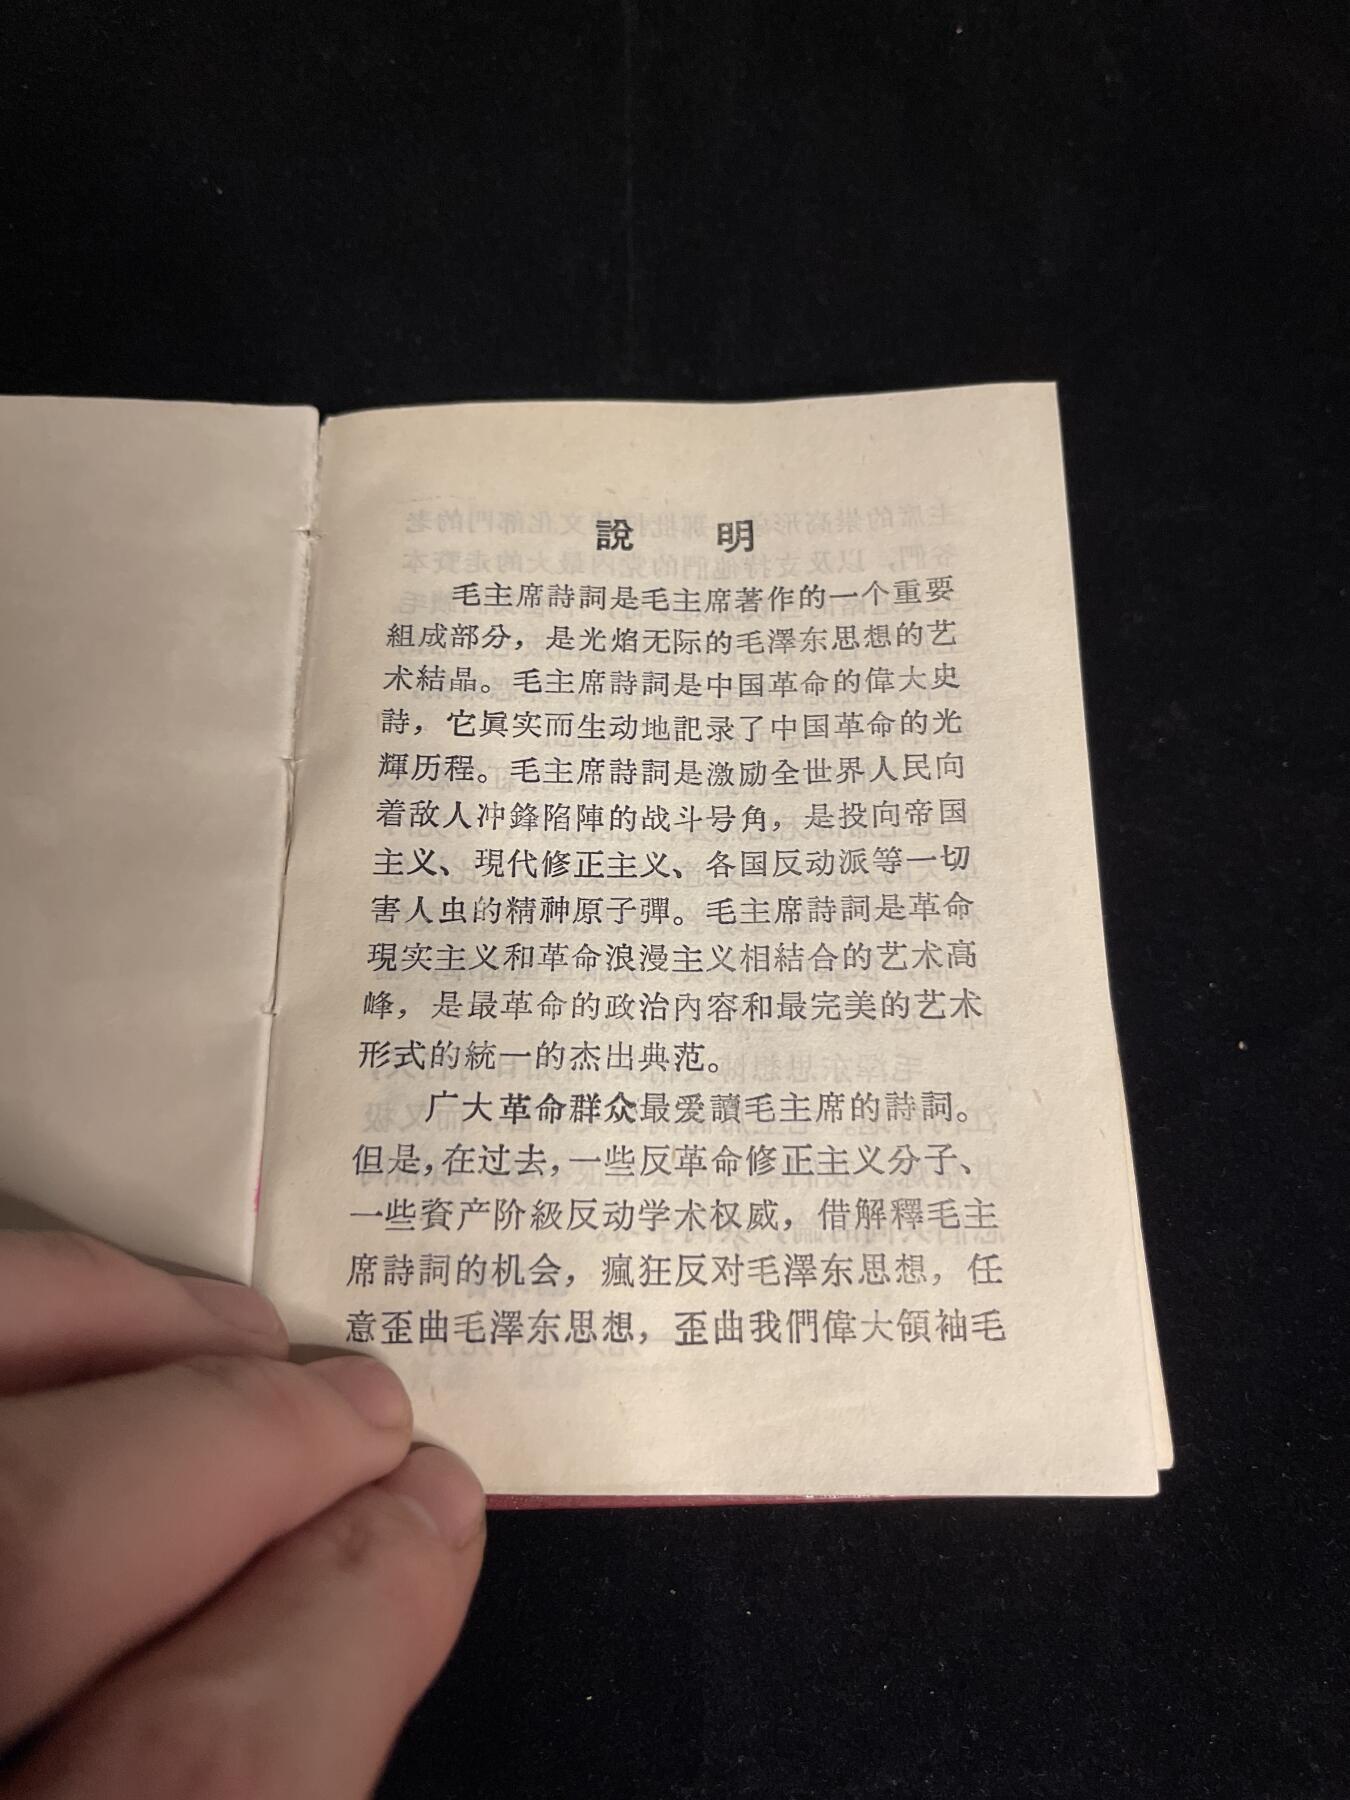 說 明
毛主席詩詞是毛主席著作的一个重要
組成部分，是光焰无际的毛澤东思想的艺
术結晶。毛主席詩詞是中国革命的偉大史
詩，它眞实而生动地記录了中国革命的光
輝历程。毛主席詩詞是激励全世界人民向
着敌人冲鋒陷陣的战斗号角，是投向帝国
主义、現代修正主义、各国反动派等一切
害人虫的精神原子彈。毛主席詩詞是革命
現实主义和革命浪漫主义相結合的艺术高
峰，是最革命的政治內容和最完美的艺术
形式的統一的杰出典范。
广大革命群众最爱讀毛主席的詩詞。
但是，在过去，一些反革命修正主义分子、
一些資产阶級反动学术权威，借解釋毛主
席詩詞的机会，瘋狂反对毛澤东思想，任
意歪曲毛澤东思想，歪曲我們偉大領袖毛